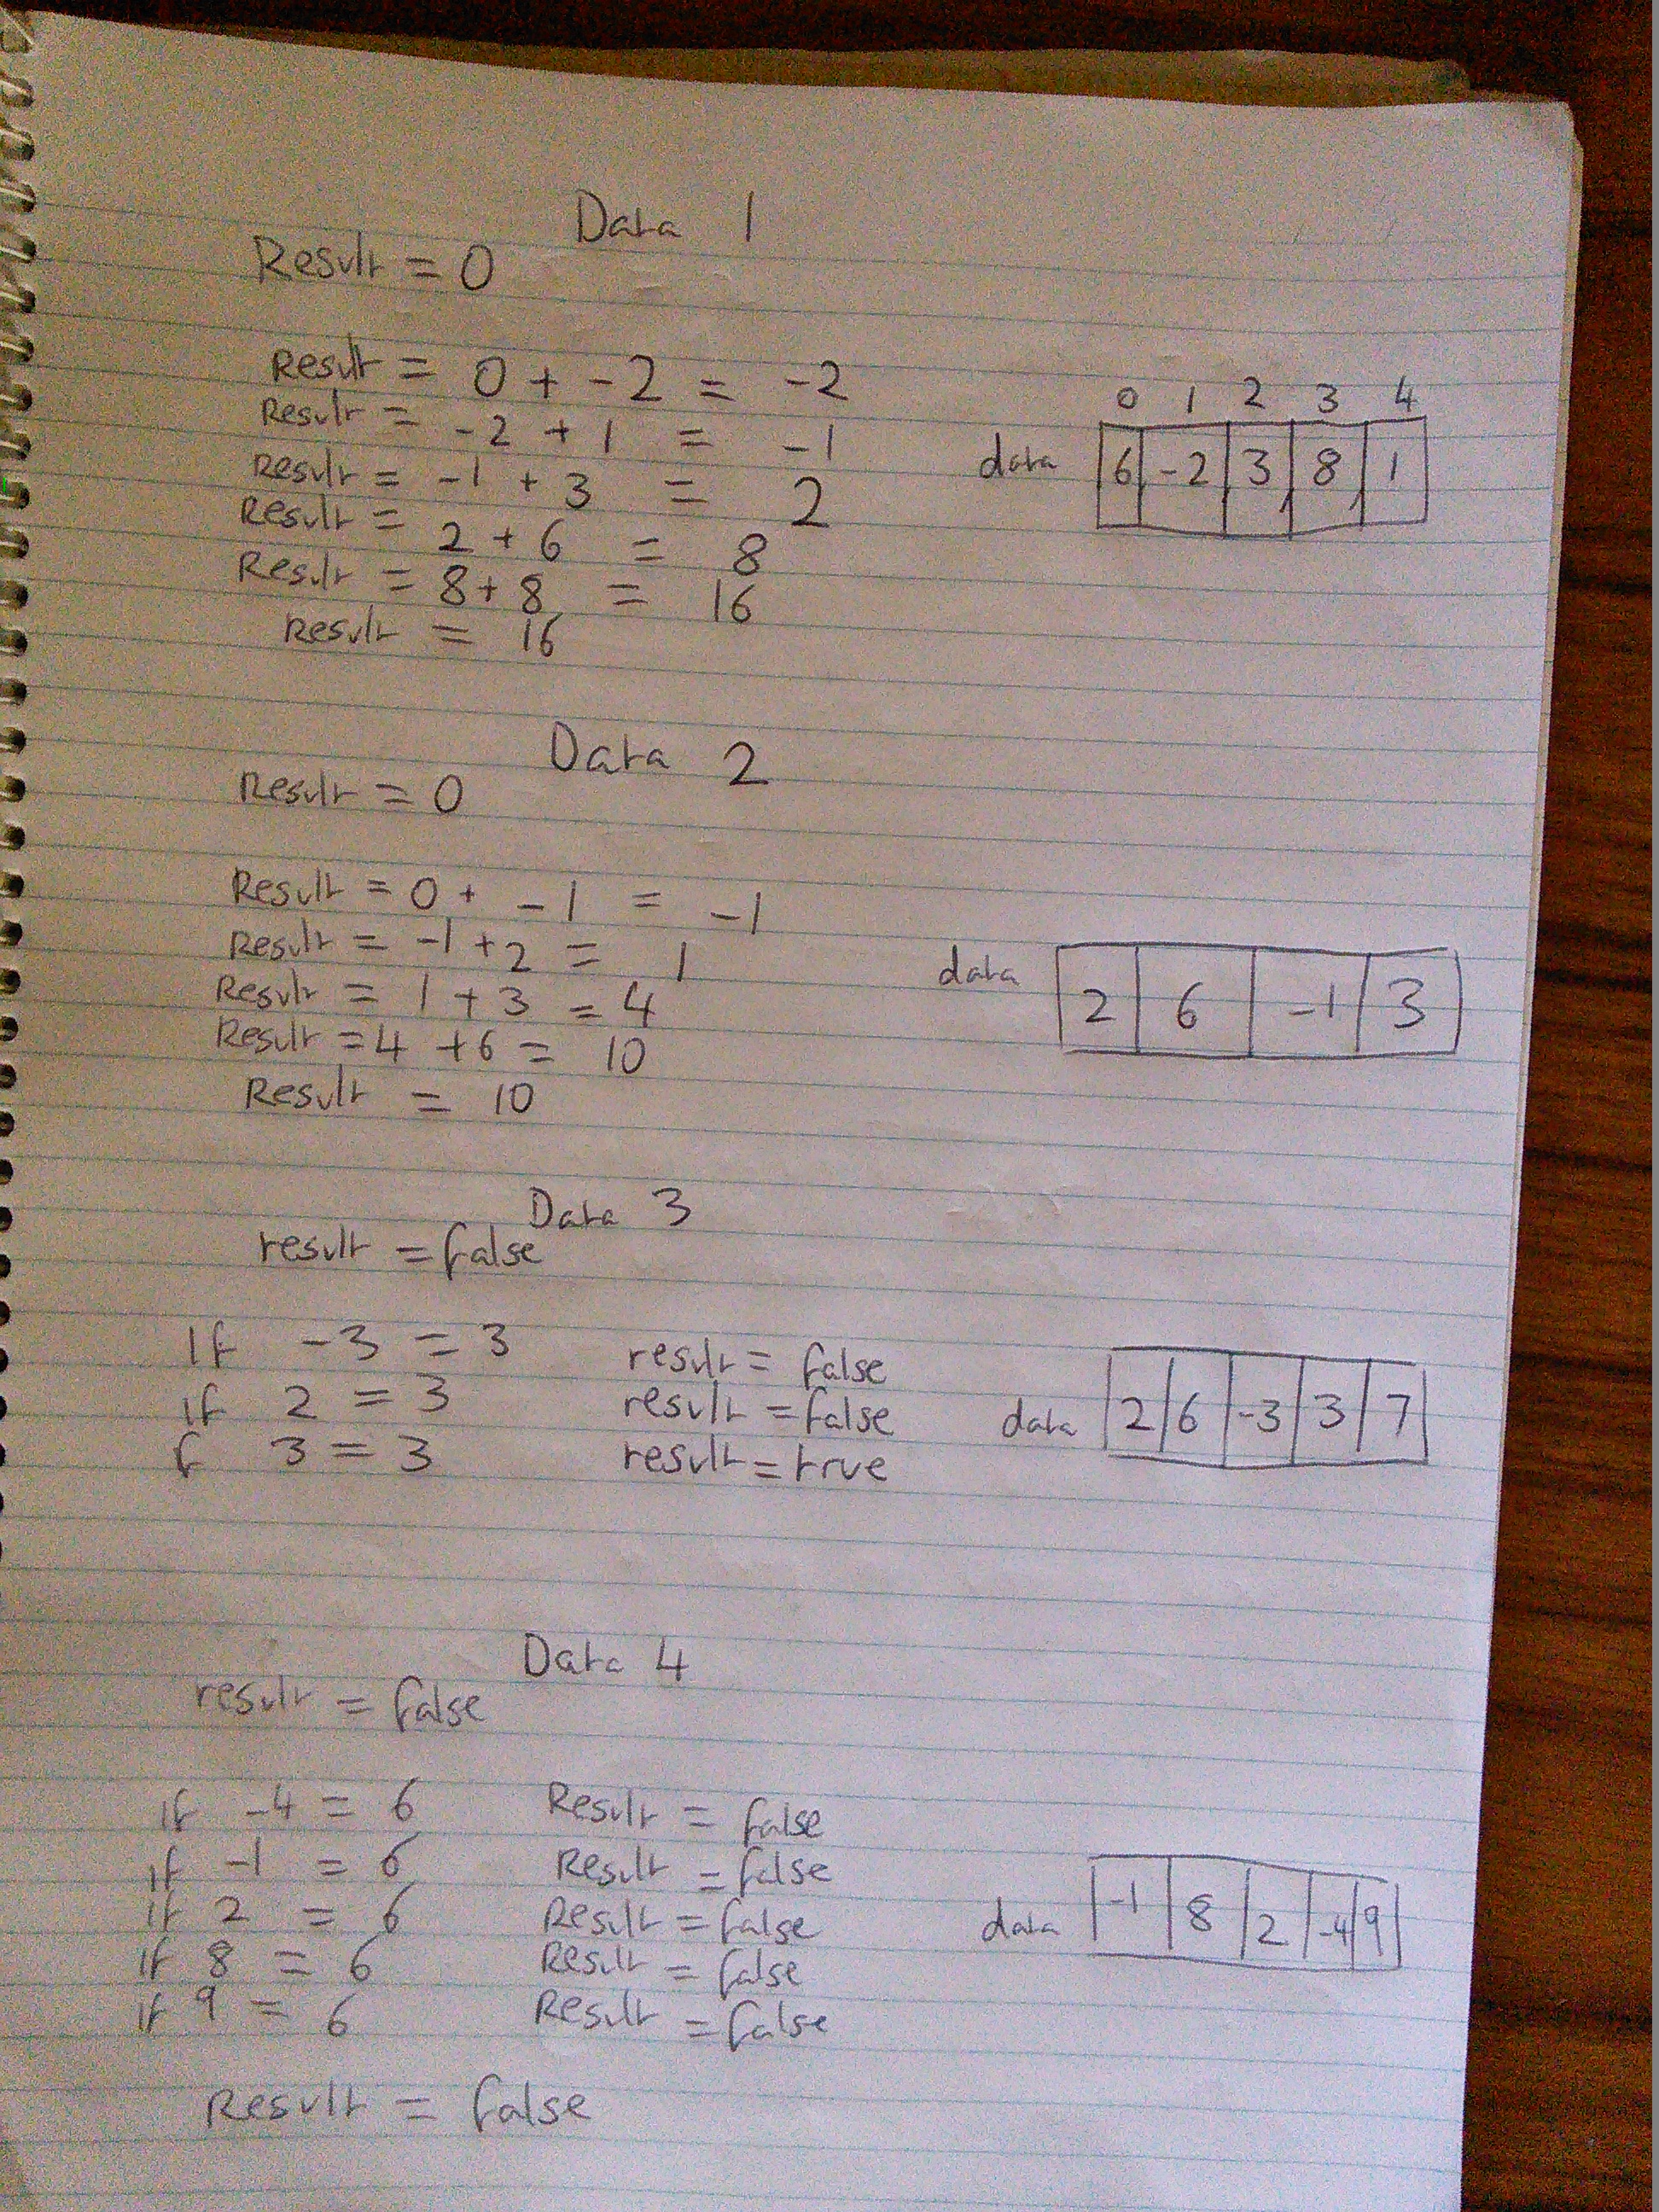 Data 1
Result = 0
Result = 0 + -2 = -2
Result = -2 + 1 = -1
Result = -1 + 3 = 2
Result = 2 + 6 = 8
Result = 8 + 8 = 16
Result = 16
0 1 2 3 4
data 6, -2, 3, 8, 1
Data 2
Result = 0
Result = 0 + -1 = -1
Result = -1 + 2 = 1
Result = 1 + 3 = 4
Result = 4 + 6 = 10
Result = 10
data 2 6 -1 3
Data 3
result = false
If -3 = 3 result = false
if 2 = 3 result = false
f 3 = 3 result = true
data 2 6 -3 3 7
Data 4
result = false
if -4 = 6 Result = false
if -1 = 6 Result = false
if 2 = 6 Result = false
if 8 = 6 Result = false
If 9 = 6 Result = false
Result = false
data -1 8 2 -4 9